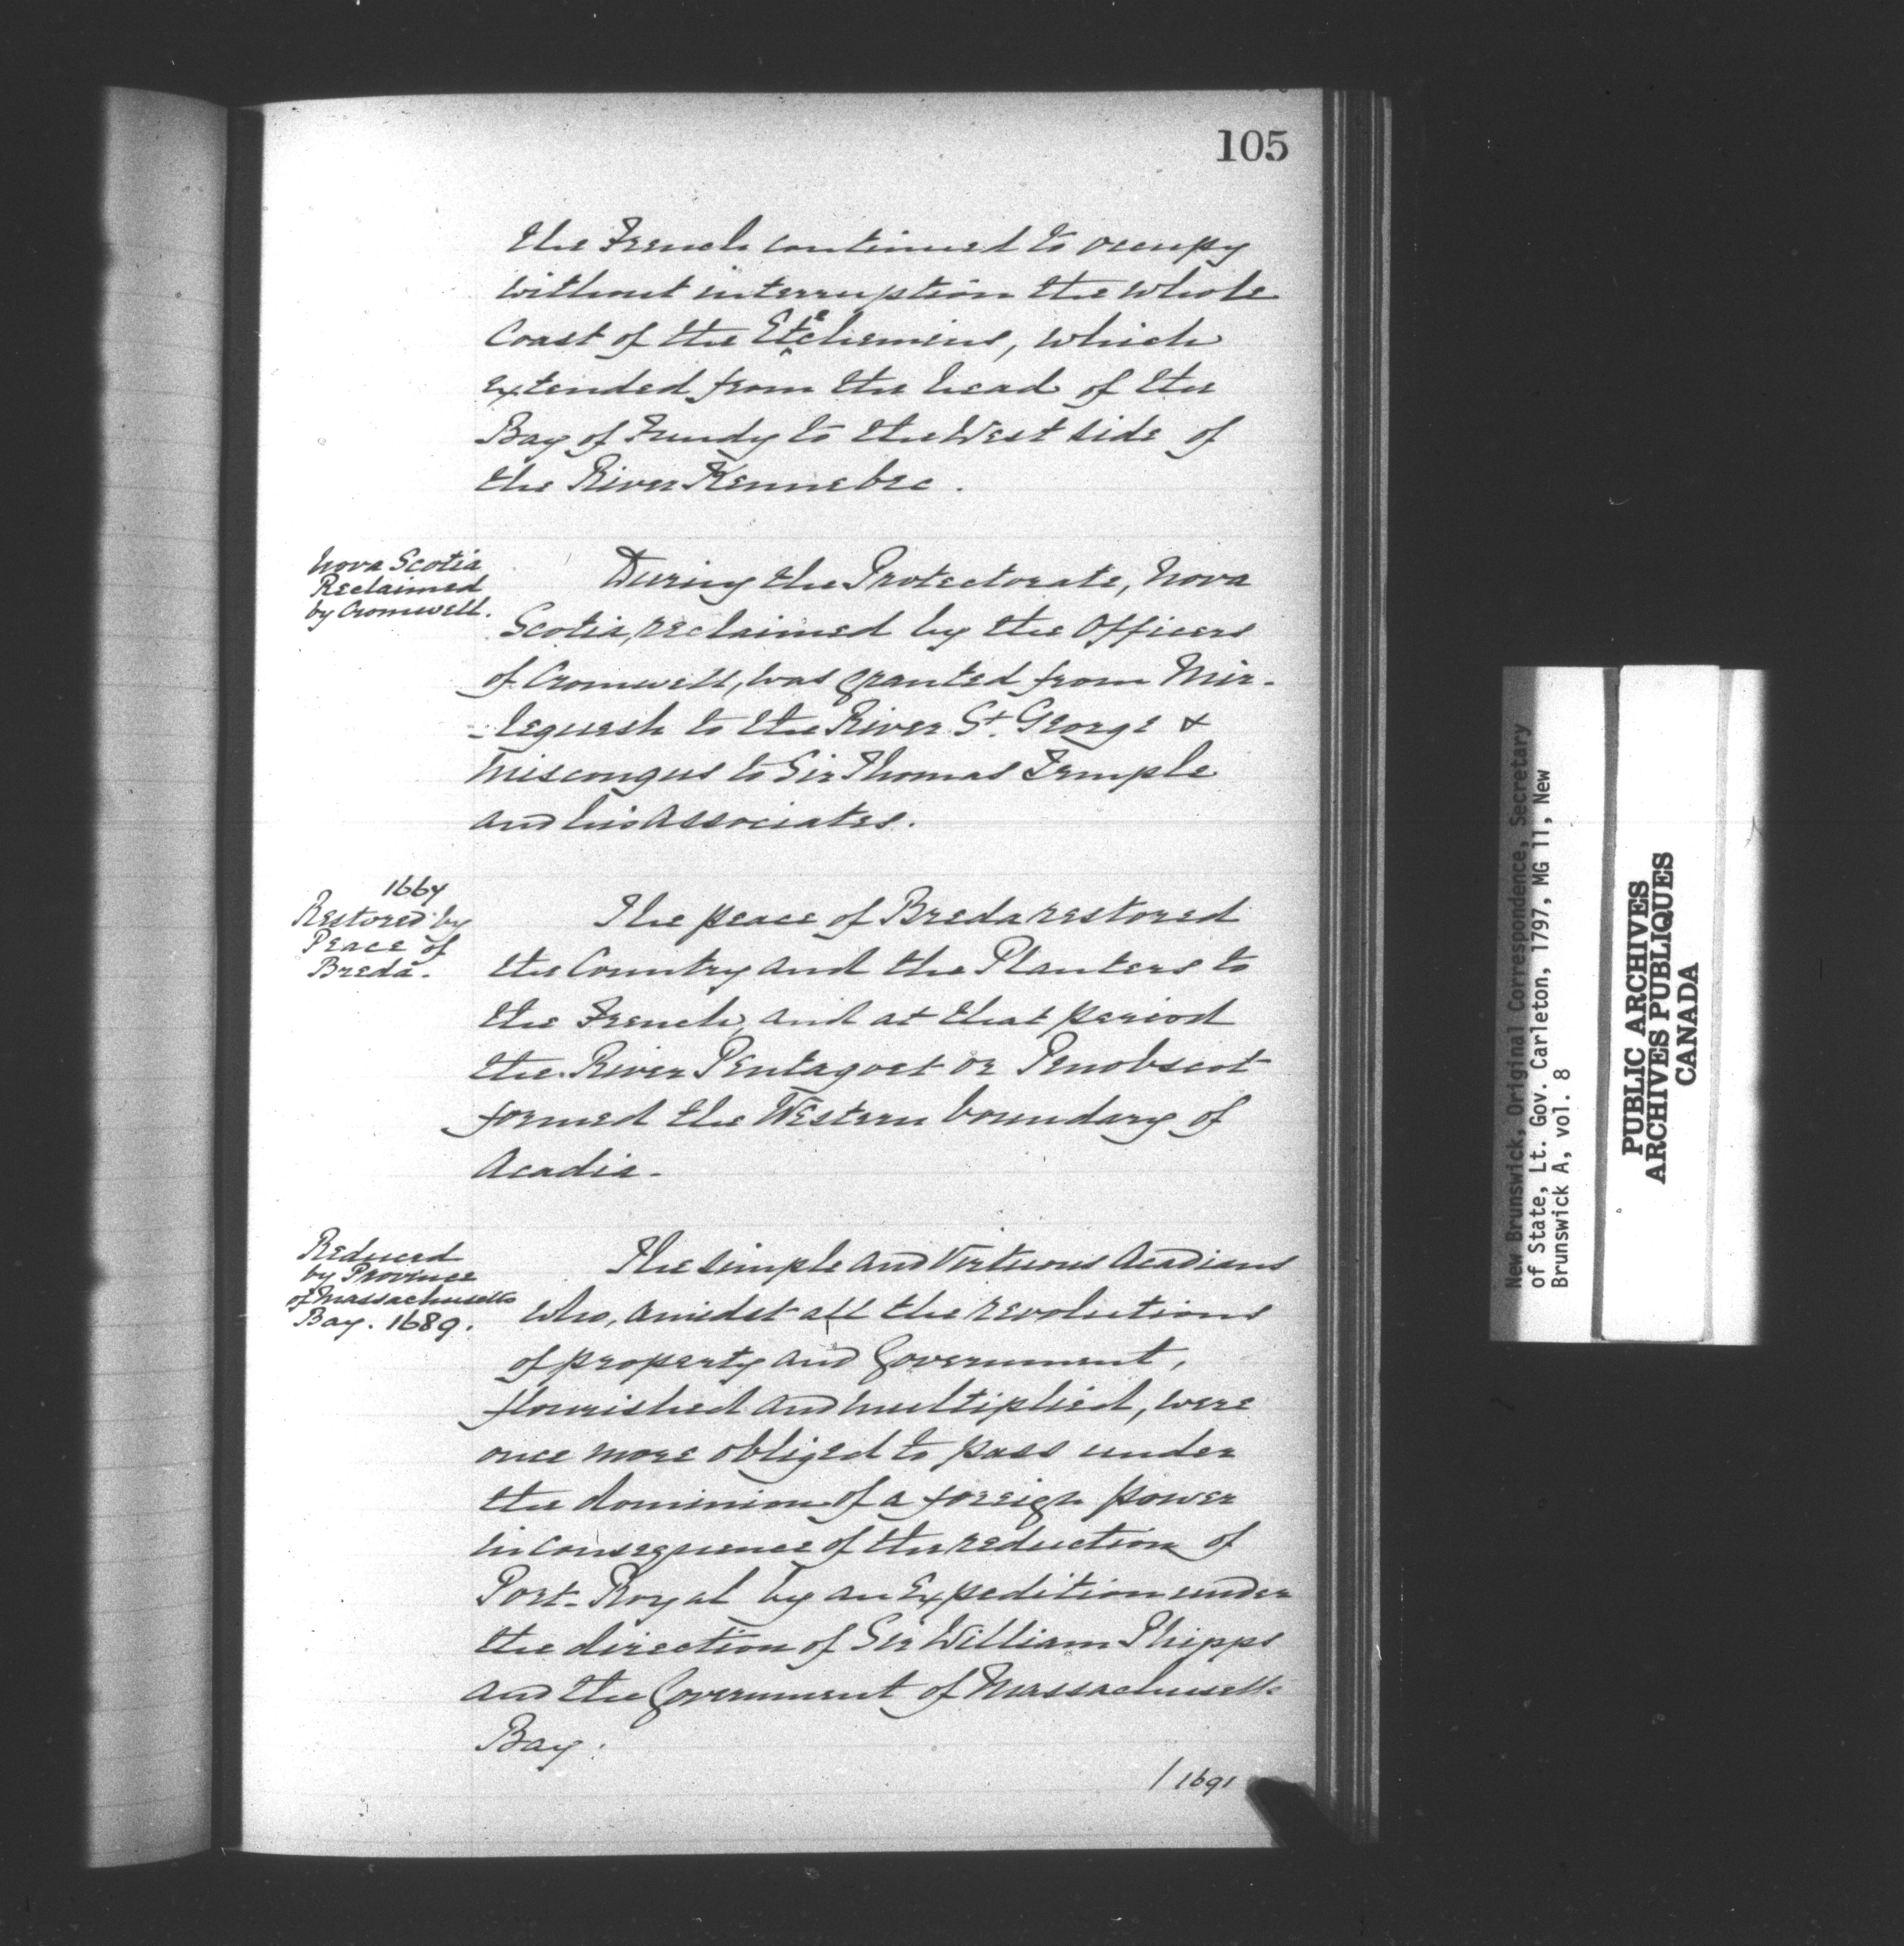 105
the French continued to occupy
without interruption the whole
Coast of the Etechemins, which
extended from the head of the
Bay of Fundy to the West side of
the River Kennebec.
Nova Scotia
Reclaimed
by Cromwell.
During the Protectorate, Nova
Scotia, reclaimed by the Officers
of Cromwell, was granted from Mir-
-leguesh to the River St. George &
Miscongus to Sir Thomas Temple
and his Associates.
1667
Restored by
Peace of
Breda.
The peace of Breda restored
the Country and the Planters to
the French, and at that period
the River Pentagoet or Penobscot
formed the Western boundary of
Acadia.
Reduced
by Province
of Massachusetts
Bay. 1689.
The simple and Virtuous Acadians
who, amidst all the revolutions
of property and Government,
flourished and multiplied, were
once more obliged to pass under
the dominion of a foreign power
in consequence of the reduction of
Port-Royal by an Expedition under
the direction of Sir William Phipps
and the Government of Massachusetts
Bay.
/ 1691
New Brunswick, Original Correspondence, Secretary
of State, Lt. Gov. Carleton, 1797, MG 11, New
Brunswick A, vol. 8
PUBLIC ARCHIVES
ARCHIVES PUBLIQUES
CANADA